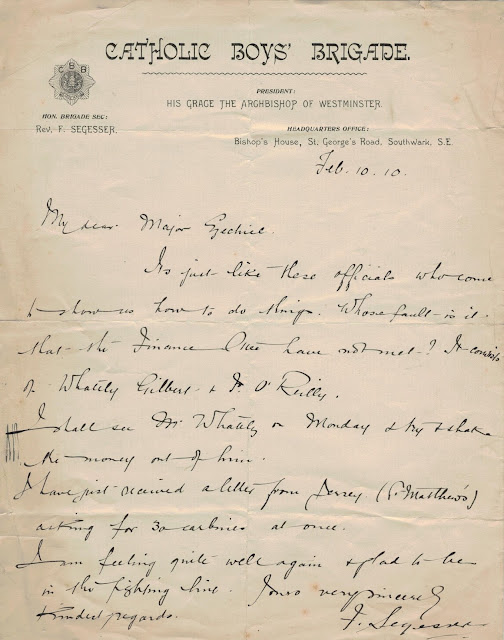 CATHOLIC BOYS' BRIGADE.
C B B
PRESIDENT:
HIS GRACE THE ARCHBISHOP OF WESTMINSTER.
HON. BRIGADE SEC:
Rev. F. SEGESSER.
HEADQUARTERS OFFICE:
Bishop's House, St. George's Road, Southwark, S.E.
Feb. 10. 10.
My dear Major Ezechiel.
Its just like these officials who come
to show us how to do things. Whose fault is it
that the Finance have not met? It consists
of Whately Gilbert & Fr O'Reilly.
I shall see Mr Whately on Monday & try & shake
the money out of him.
I have just received a letter from Jersey (St. Matthew's)
asking for 30 carbines at once.
I am feeling quite well again & glad to be
in the fighting line. Yours very sincerely
Kindest regards. F. Segesser